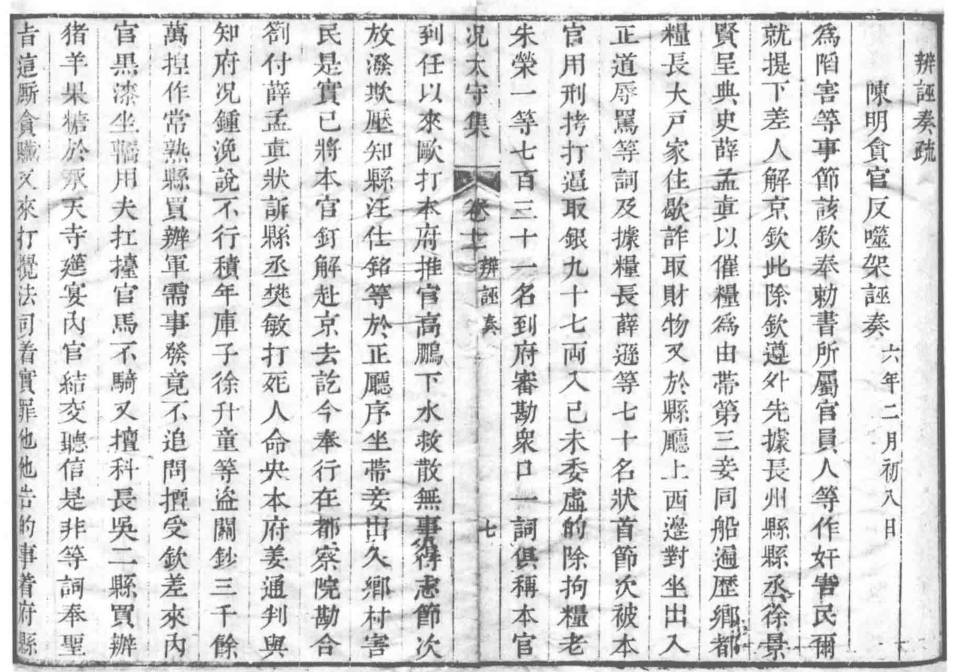 辨誣奏疏
陳明貪官反噬架誣奏 六年二月初八日
爲陷害等事節該欽奉勅書所屬官員人等作奸害民爾
就提下差人解京欽此除欽遵外先據長州縣縣丞徐景
賢呈典史薛孟真以催糧爲由帶第三妾同船遍歷鄉都
糧長大戸家住歇詐取財物又於縣廳上西邊對坐出入
正道辱罵等詞及據糧長薛遜等七十名狀首節次被本
官用刑拷打逼取銀九十七両入己未委虛的除拘糧老
朱榮一等七百三十一名到府審勘衆口一詞俱稱本官
况太守集 卷十二 辨誣奏 七
到任以來歐打本府推官高鵬下水救散無事得志節次
放潑欺壓知縣汪仕銘等於正廳序坐帶妾出久鄉村害
民是實已將本官釘解赴京去訖今奉行在都察院勘合
劄付薛孟真狀訴縣丞焚敏打死人命央本府姜通判與
知府况鍾浼說不行積年庫子徐升童等盜關鈔三千餘
萬揑作常熟縣買辦軍需事發竟不追問擅受欽差來內
官黑漆坐轎用夫扛擡官馬不騎又擅科長吳二縣買辦
猪羊果糖於承天寺筵宴內官結交聽信是非等詞奉聖
旨這厮貪贓又來打攪法司着實罪他他告的事着府縣